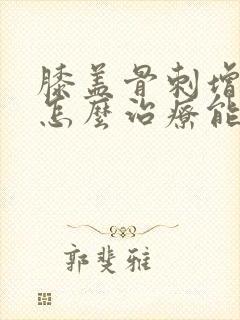 膝盖骨刺增
怎麼治療能
郭斐雅